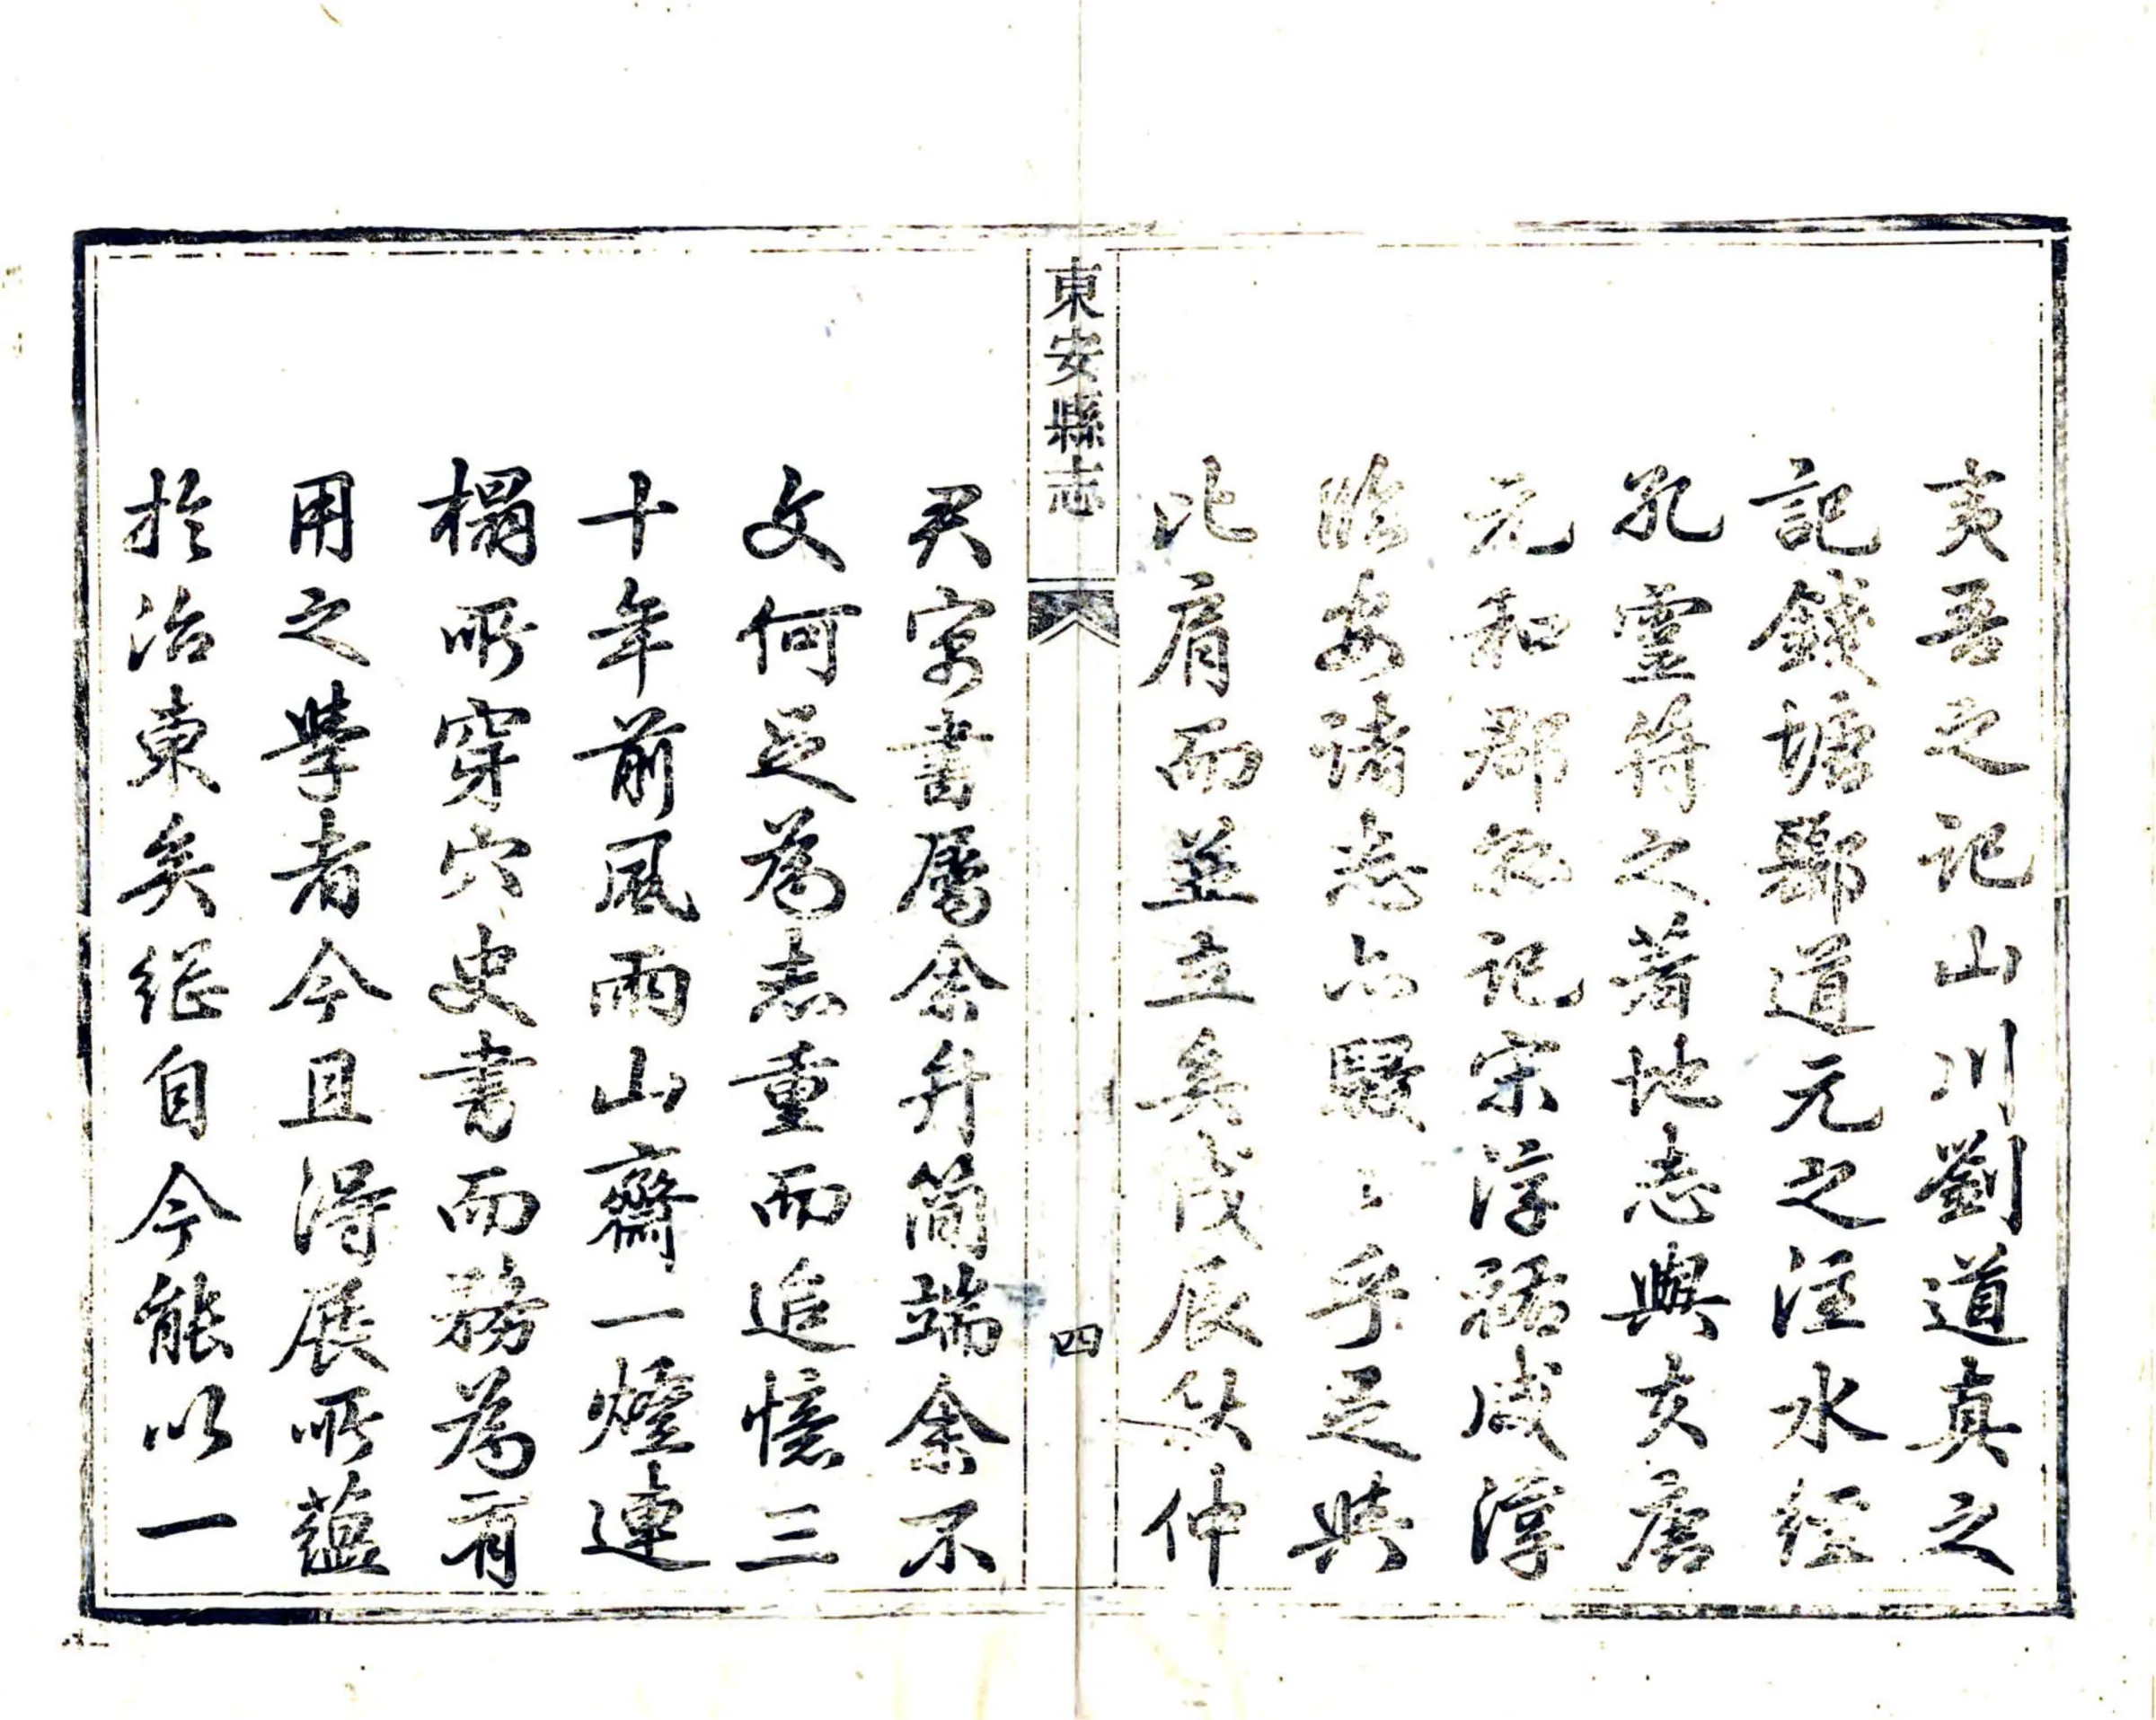 夷吾之記山川劉道真之
記錢塘酈道元之注水經
孔靈符之著地志與夫唐
元和郡縣記宋淳祐咸淳
臨安諸志亦駸々乎足與
比肩而並立矣戊辰秋仲
東安縣志 四
君寓書屬余弁簡端余不
文何足為志重而追憶三
十年前風雨山齋一燈連
榻所穿穴史書而務為有
用之學者今且得展所蘊
於治東矣繼自今能以一